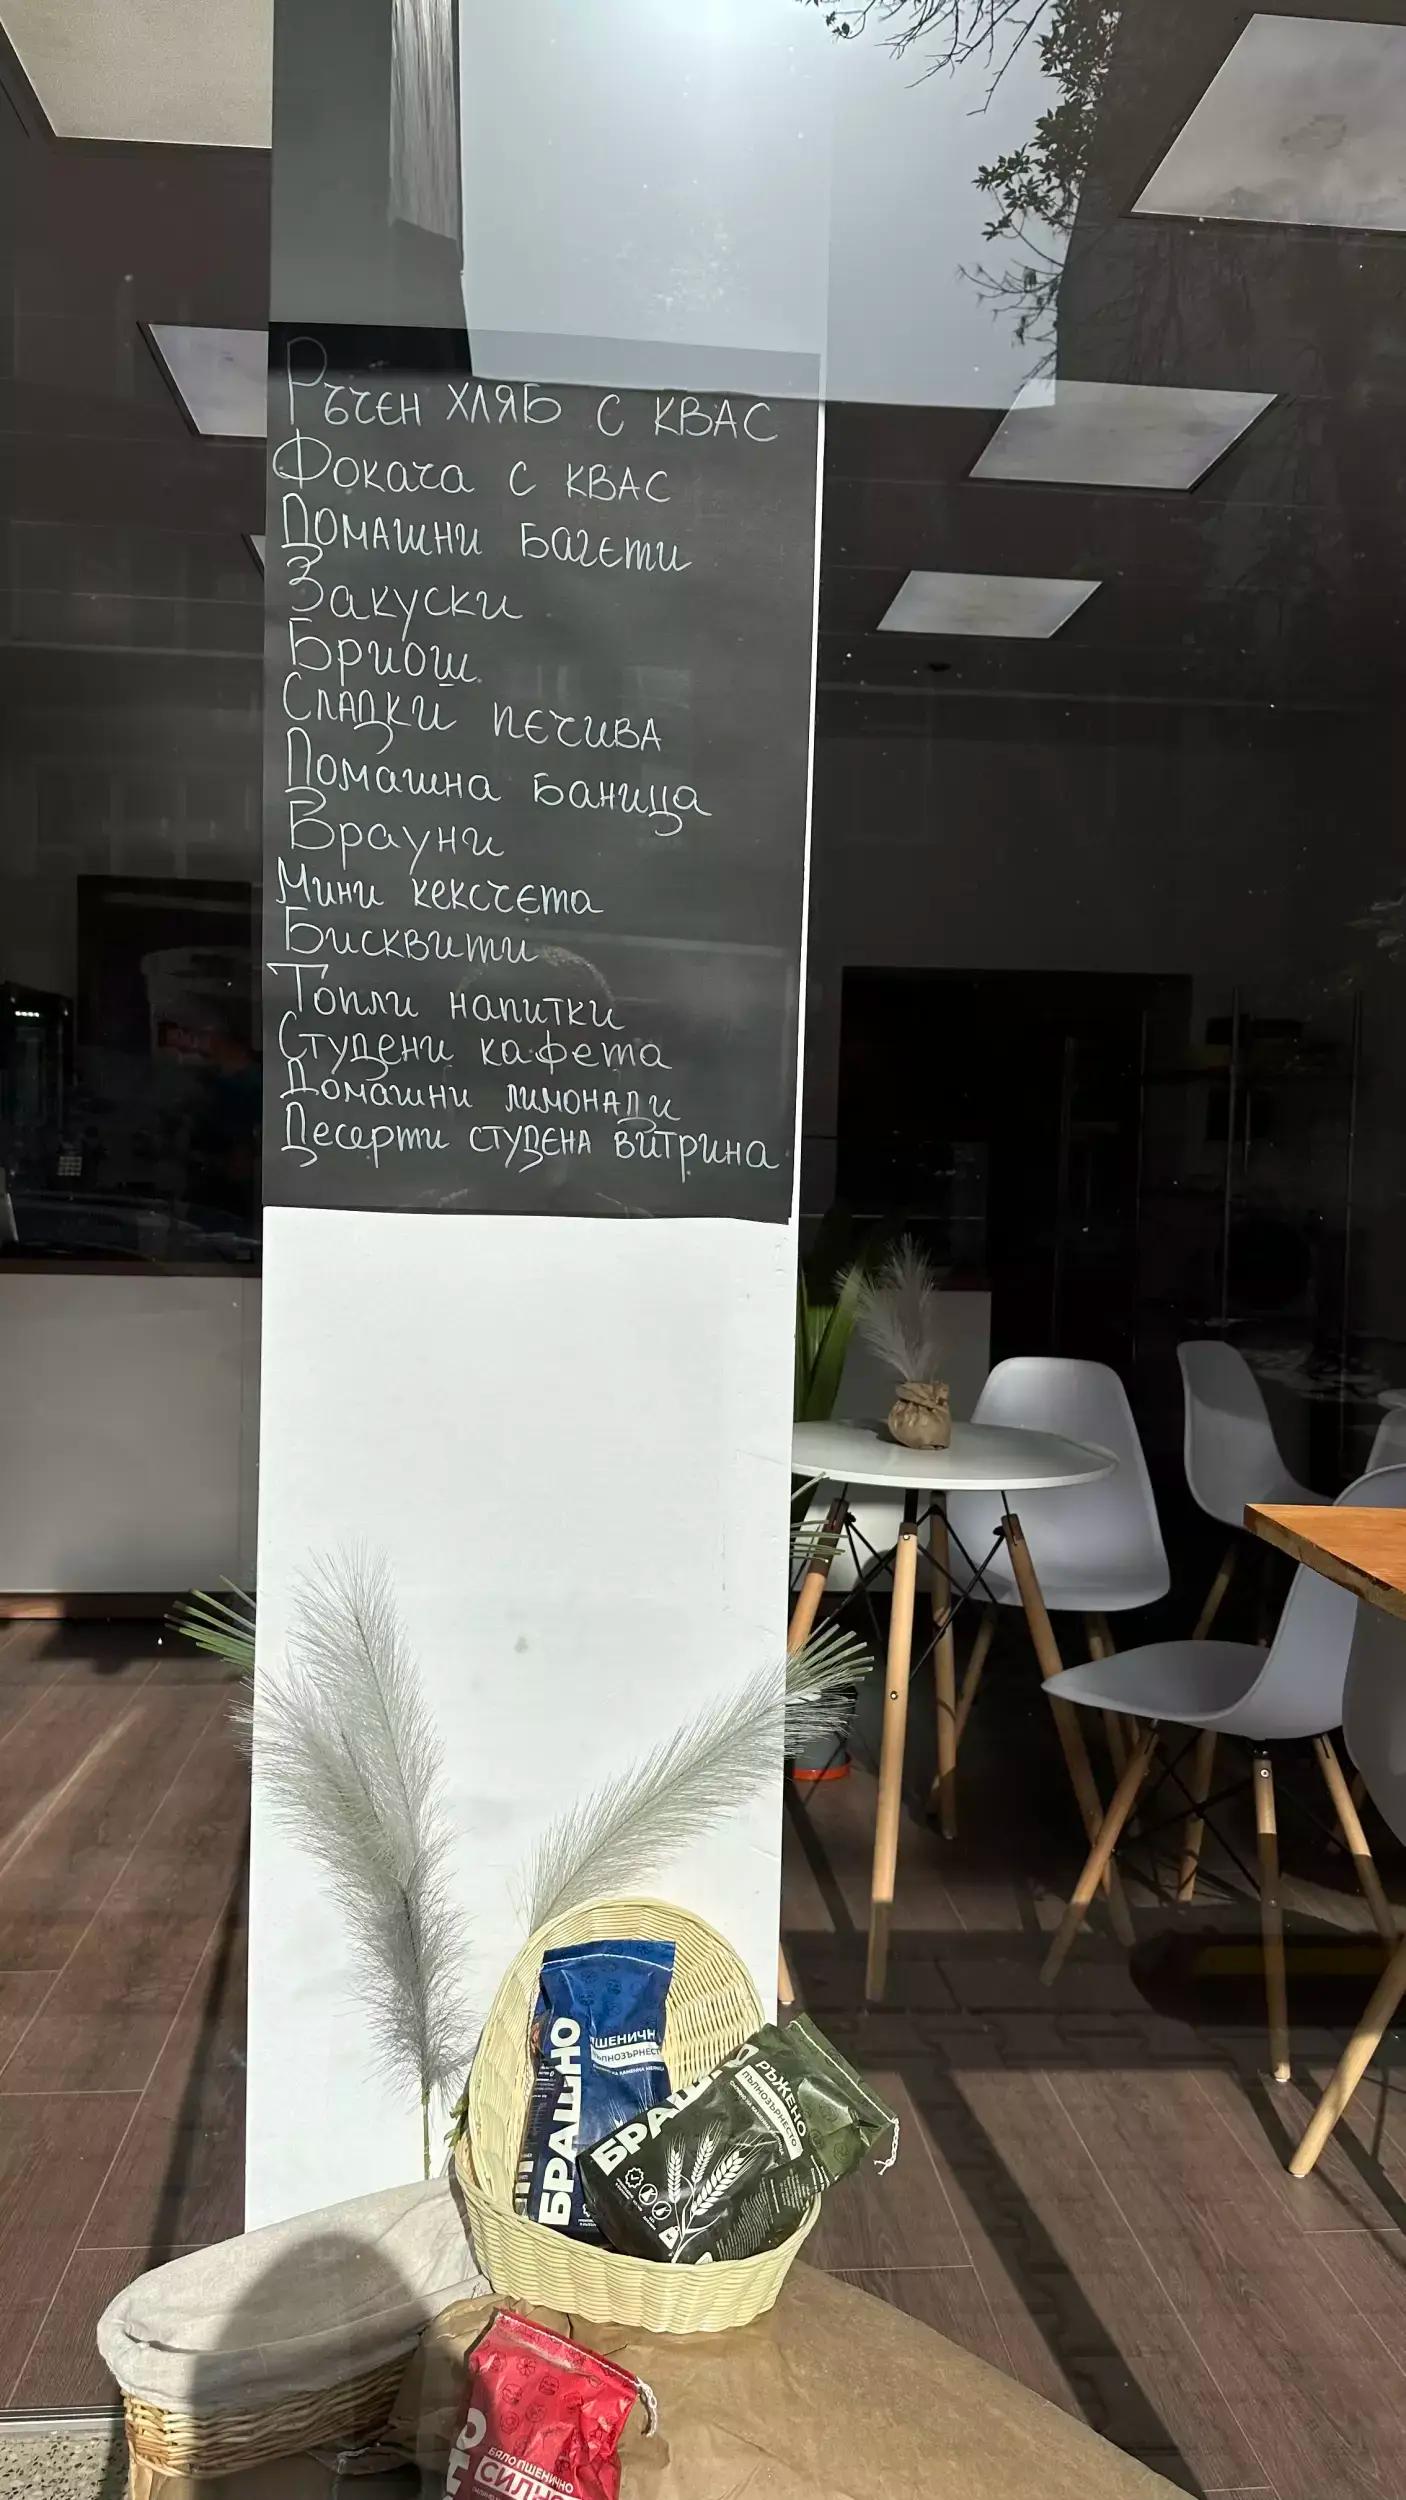 Ръчен хляб с квас
Фокача с квас
Домашни багети
Закуски
Бриош
Сладки печива
Домашна баница
Брауни
Мини кексчета
Бисквити
Топли напитки
Студени кафета
Домашни лимонади
Десерти студена витрина
БРАШНО
РЪЖЕНО
ПЪЛНОЗЪРНЕСТО
БЯЛО ПШЕНИЧНО